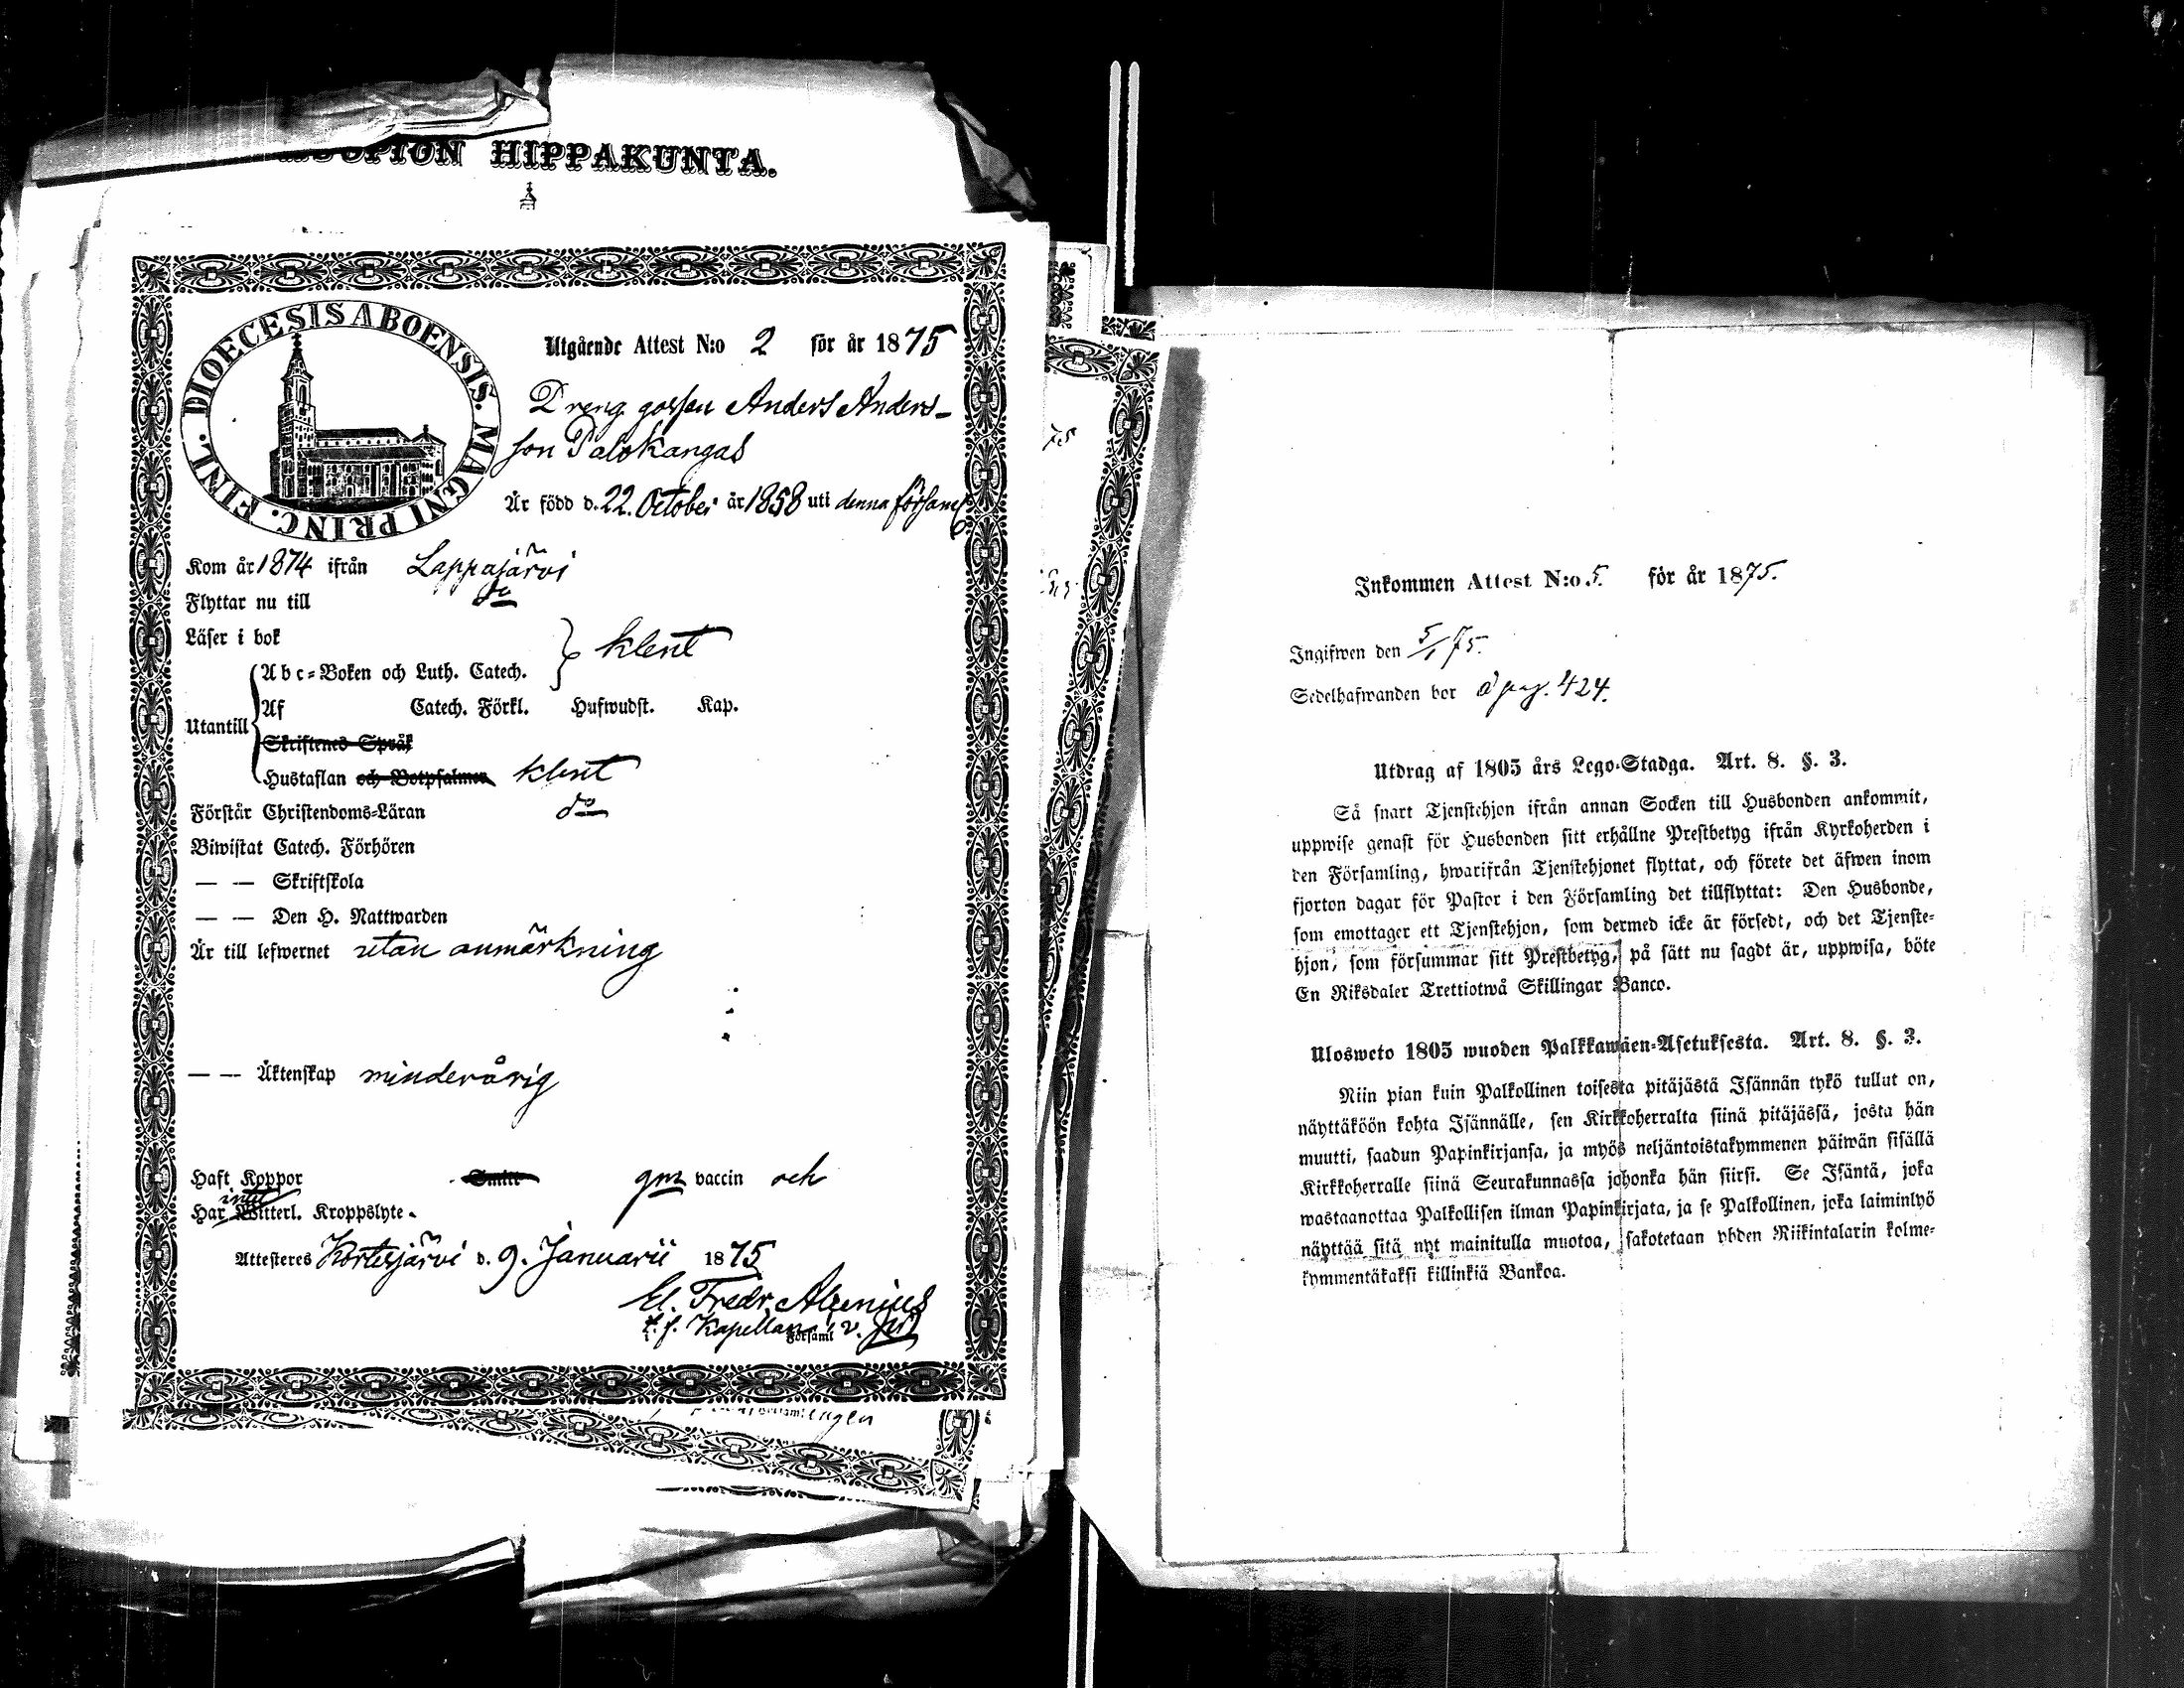 HIPPAKUNTA.
DIOECESIS ABOENSIS. MAGNI PRINC. FINL.
Utgående Attest N:o 2 för år 1875
Dreng gossen Anders Anders-
son Palokangas
Är född d. 22. October år 1858 uti denna församl
Kom år 1874 ifrån Lappajärvi
Flyttar nu till do
Läser i bok
Abc-Boken och Luth. Catech. } klent
Utantill Af Catech. Förkl. Hufwudst. Kap.
Skriftenes Språk
Hustaflan och Botpsalmer klent
Förstår Christendoms-Läran do
Biwistat Catech. Förhören
— — Skriftskola
— — Den H. Nattwarden
Är till lefwernet utan anmärkning
— — Äktenskap minderårig
Haft Koppor Smitt gm vaccin och
intet
Har Witterl. Kroppslyte.
Attesteres Kortesjärvi d. 9. Januarii 1875
El. Fredr. Alcenius
t. f. Kapellan Församl v.
75
Inkommen Attest N:o 5. för år 1875.
Ingifwen den 5/1 75.
Sedelhafwanden bor å pag. 424.
Utdrag af 1805 års Lego-Stadga. Art. 8. §. 3.
Så snart Tjenstehjon ifrån annan Socken till Husbonden ankommit,
uppwise genast för Husbonden sitt erhållne Prestbetyg ifrån Kyrkoherden i
den Församling, hwarifrån Tjenstehjonet flyttat, och förete det äfwen inom
fjorton dagar för Pastor i den Församling det tillflyttat: Den Husbonde,
som emottager ett Tjenstehjon, som dermed icke är försedt, och det Tjenste-
hjon, som försummar sitt Prestbetyg, på sätt nu sagdt är, uppwisa, böte
En Riksdaler Trettiotwå Skillingar Banco.
Ulosweto 1805 wuoden Palkkawäen-Asetuksesta. Art. 8. §. 3.
Niin pian kuin Palkollinen toisesta pitäjästä Isännän tykö tullut on,
näyttäköön kohta Isännälle, sen Kirkkoherralta siinä pitäjässä, josta hän
muutti, saadun Papinkirjansa, ja myös neljäntoistakymmenen päiwän sisällä
Kirkkoherralle siinä Seurakunnassa johonka hän siirsi. Se Isäntä, joka
wastaanottaa Palkollisen ilman Papinkirjata, ja se Palkollinen, joka laiminlyö
näyttää sitä nyt mainitulla muotoa, sakotetaan yhden Riikintalarin kolme-
kymmentäkaksi killinkiä Bankoa.